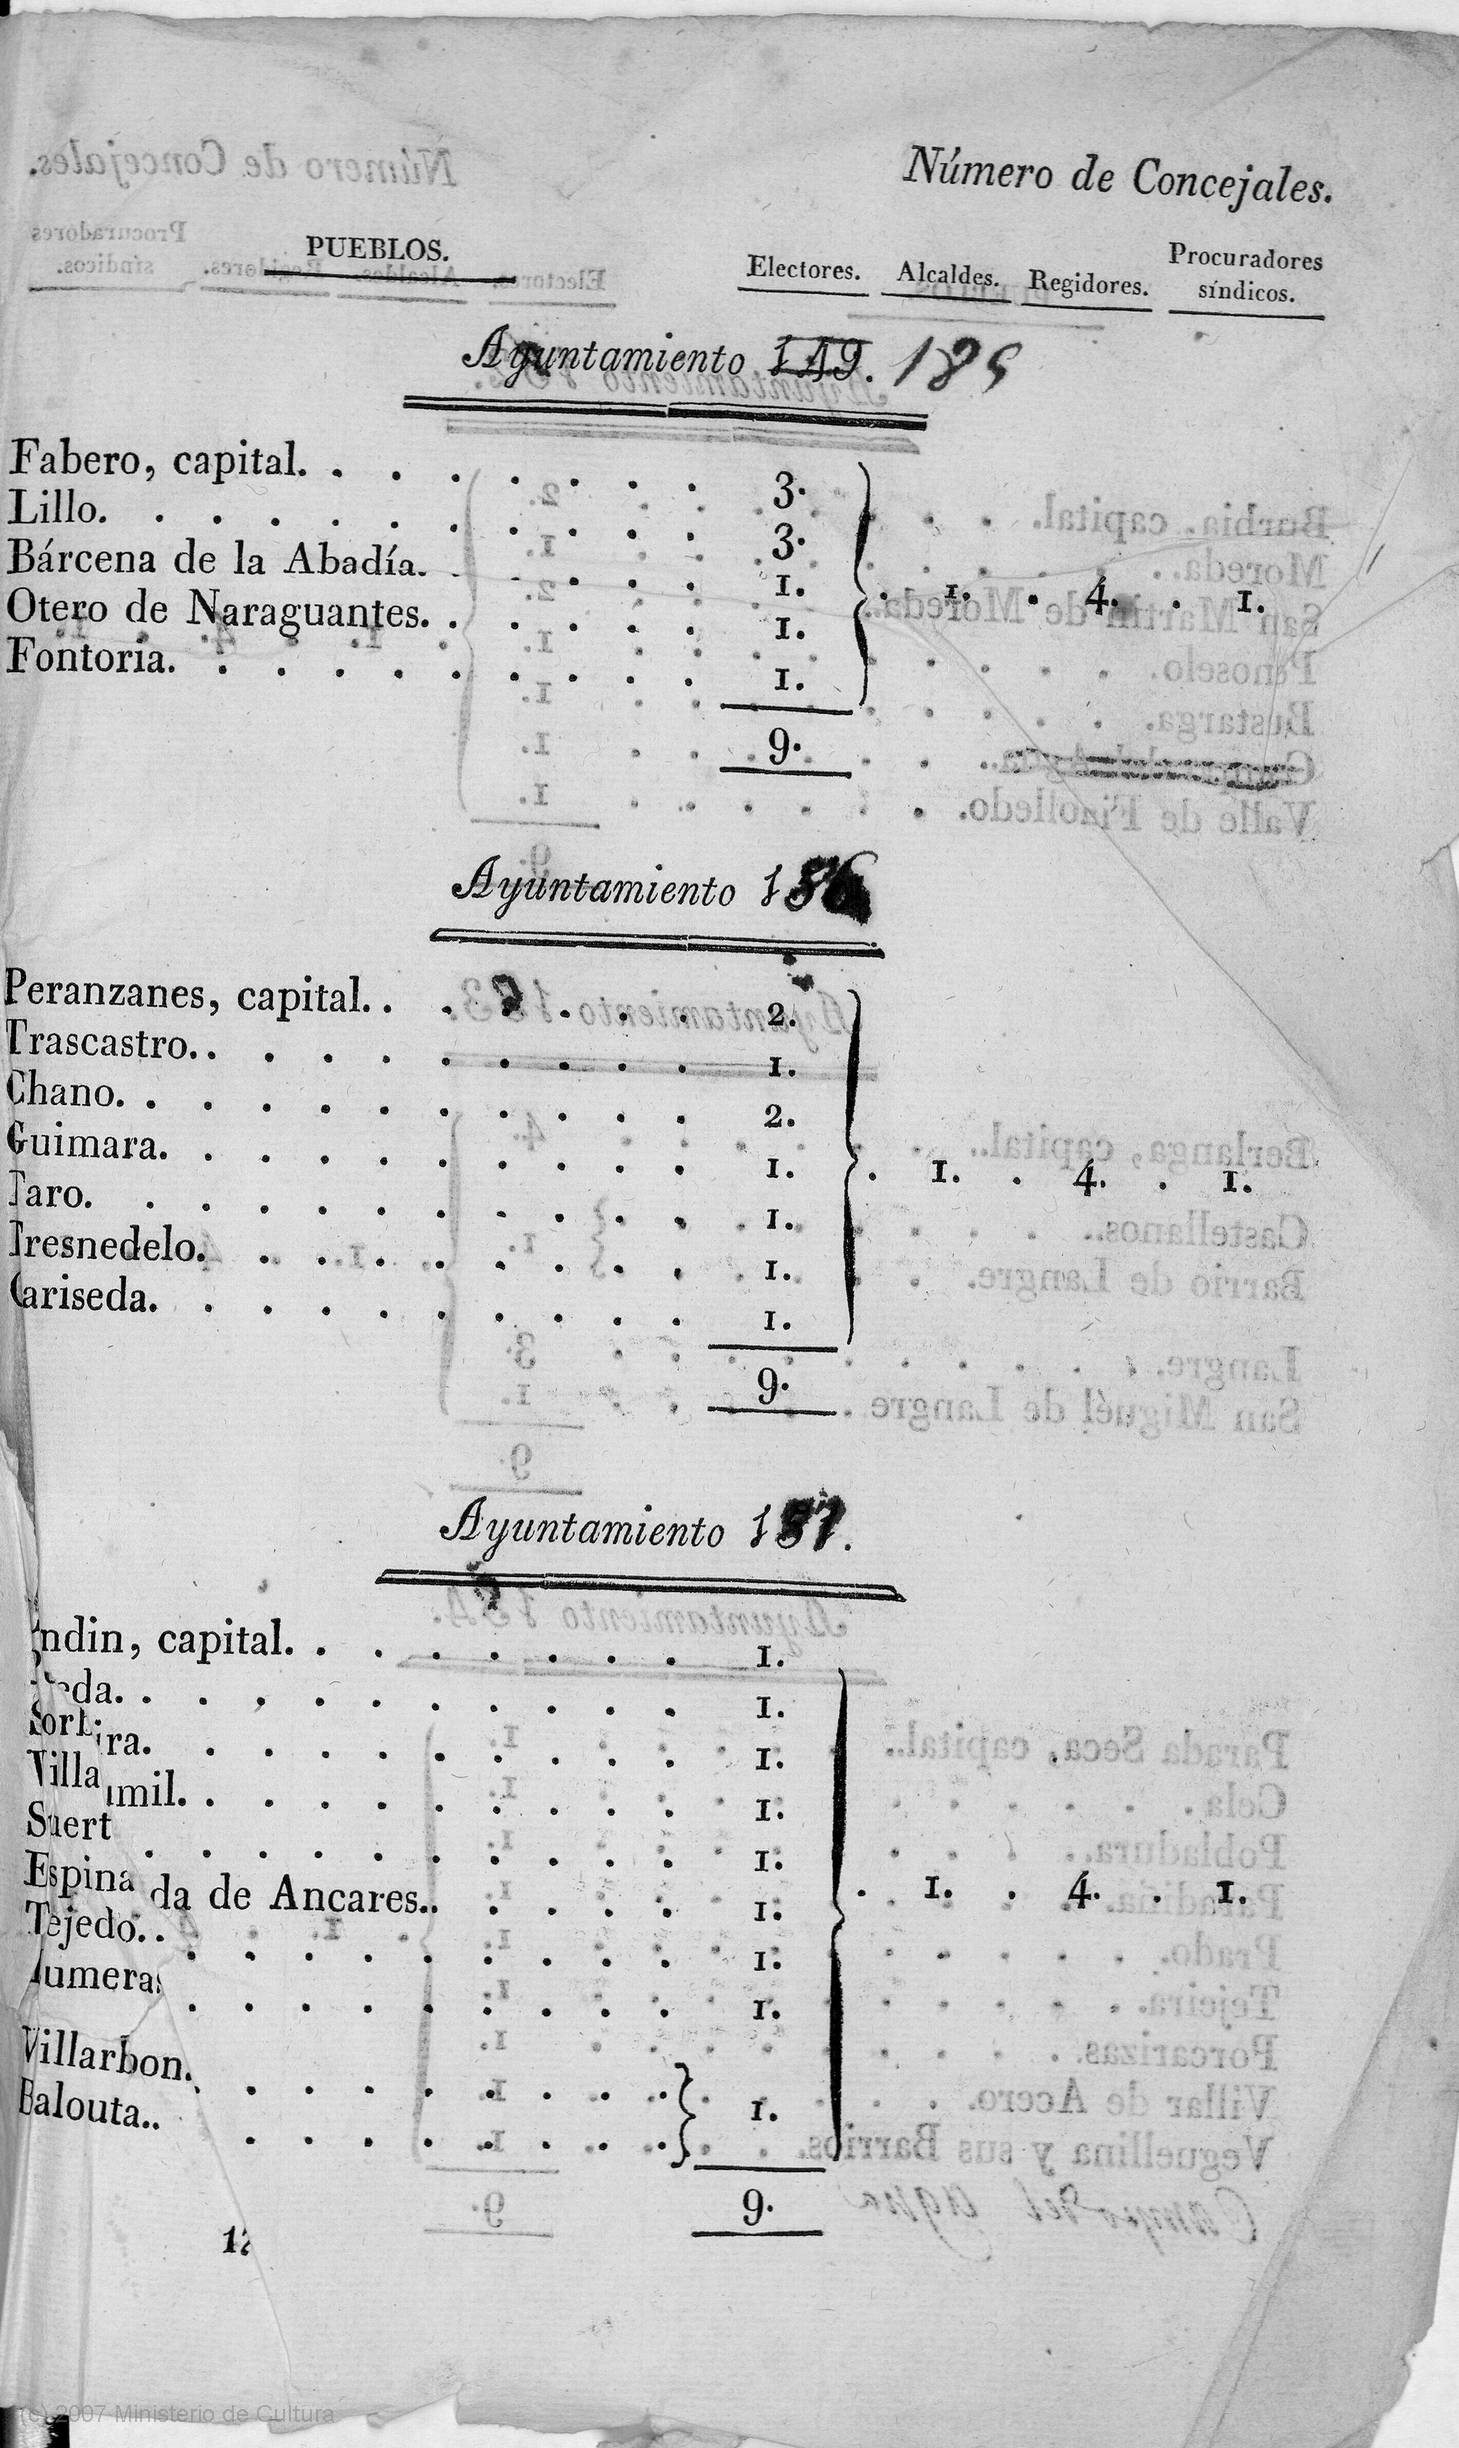 Número de Concejales.
PUEBLOS. Electores. Alcaldes. Regidores. Procuradores síndicos.
Ayuntamiento 149. 185
Fabero, capital. . . . . . . . 3.
Lillo. . . . . . . . . . . 3.
Bárcena de la Abadía. . . . . . 1.
Otero de Naraguantes. . . . . . 1. . 1. . 4. . 1.
Fontoria. . . . . . . . . . 1.
9.
Ayuntamiento 186
Peranzanes, capital. . . . . . . 2.
Trascastro. . . . . . . . . . 1.
Chano. . . . . . . . . . . 2.
Guimara. . . . . . . . . . 1. . 1. . 4. . 1.
Faro. . . . . . . . . . . 1.
Tresnedelo. . . . . . . . . 1.
Cariseda. . . . . . . . . . 1.
9.
Ayuntamiento 187.
ndin, capital. . . . . . . . 1.
eda. . . . . . . . . . . 1.
Sorb ira. . . . . . . . . . 1.
Villa umil. . . . . . . . . . 1.
Suert . . . . . . . . . . 1.
Espina da de Ancares. . . . . . 1. . 1. . 4. . 1.
Tejedo. . . . . . . . . . . 1.
umeras . . . . . . . . . 1.
Villarbon. . . . . . . . . .
Balouta. . . . . . . . . . 1.
9.
12
(c) 2007 Ministerio de Cultura